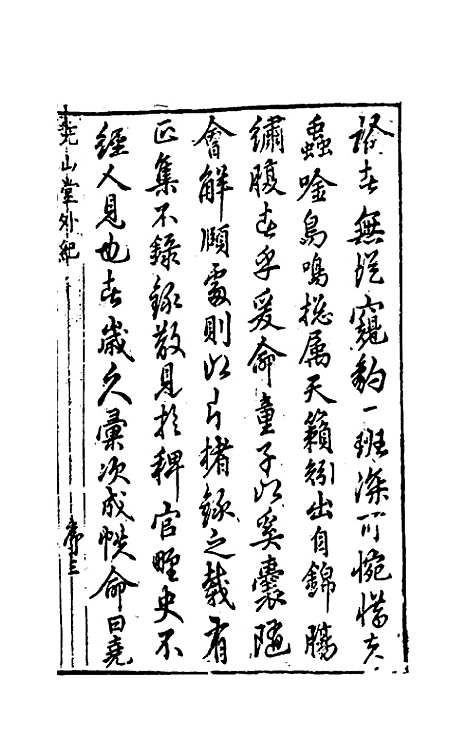 證者無從窺豹一班深可惋惜夫
蟲唫鳥鳴摠属天籟矧出自錦膓
繡腹者乎爰命童子以奚囊隨
會解頤處則以片楮錄之載有
正集不錄錄散見扵稗官野史不
經人見也者歲久彙次成帙命曰堯
堯山堂外紀
序三